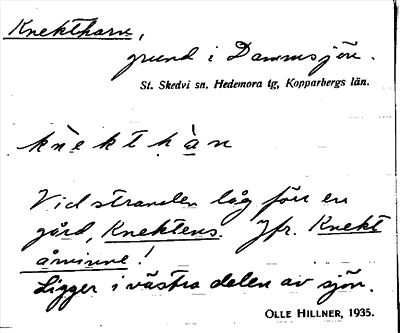 Knektharn,
grund i Dammsjön.
St. Skedvi sn, Hedemora tg, Kopparbergs län.
knèkthàn
Vid stranden låg förr en
gård, Knektens. Jfr. Knekt
åminne!
Ligger i västra delen av sjön.
OLLE HILLNER, 1935.